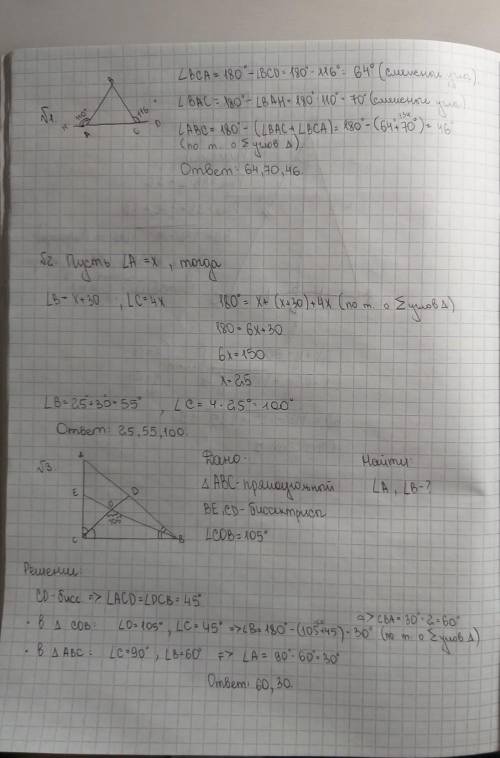 ∠BCA = 180° - ∠BCD = 180° - 116° = 64° (смежные углы).
№1.
B
110°
116
H
A
C
D
∠BAC = 180° - ∠BAH = 180° - 110° = 70° (смежные углы)
∠ABC = 180° - (∠BAC + ∠BCA) = 180° - (64° + 70°) = 46°
134
(по т. о Σ углов Δ).
Ответ: 64, 70, 46.
№2. Пусть ∠A = x, тогда
∠B = x+30, ∠C = 4x
180° = x + (x+30) + 4x (по т. о Σ углов Δ)
180 = 6x+30
6x = 150
x = 25
∠B = 25°+30° = 55°, ∠C = 4 · 25° = 100°
Ответ: 25, 55, 100.
№3.
A
E
D
O
105°
C
B
Дано:
Δ ABC - прямоугольный
BE, CD - биссектрисы
∠COB = 105°
Найти:
∠A, ∠B - ?
Решение:
CD - бисс => ∠ACD = ∠DCB = 45°
=> ∠BA = 30° · 2 = 60°
• В Δ COB: ∠O = 105°, ∠C = 45° => ∠B = 180° - (105° + 45) = 30° (по т. о Σ углов Δ)
• В Δ ABC: ∠C = 90°, ∠B = 60° => ∠A = 90° - 60° = 30°
Ответ: 60, 30.